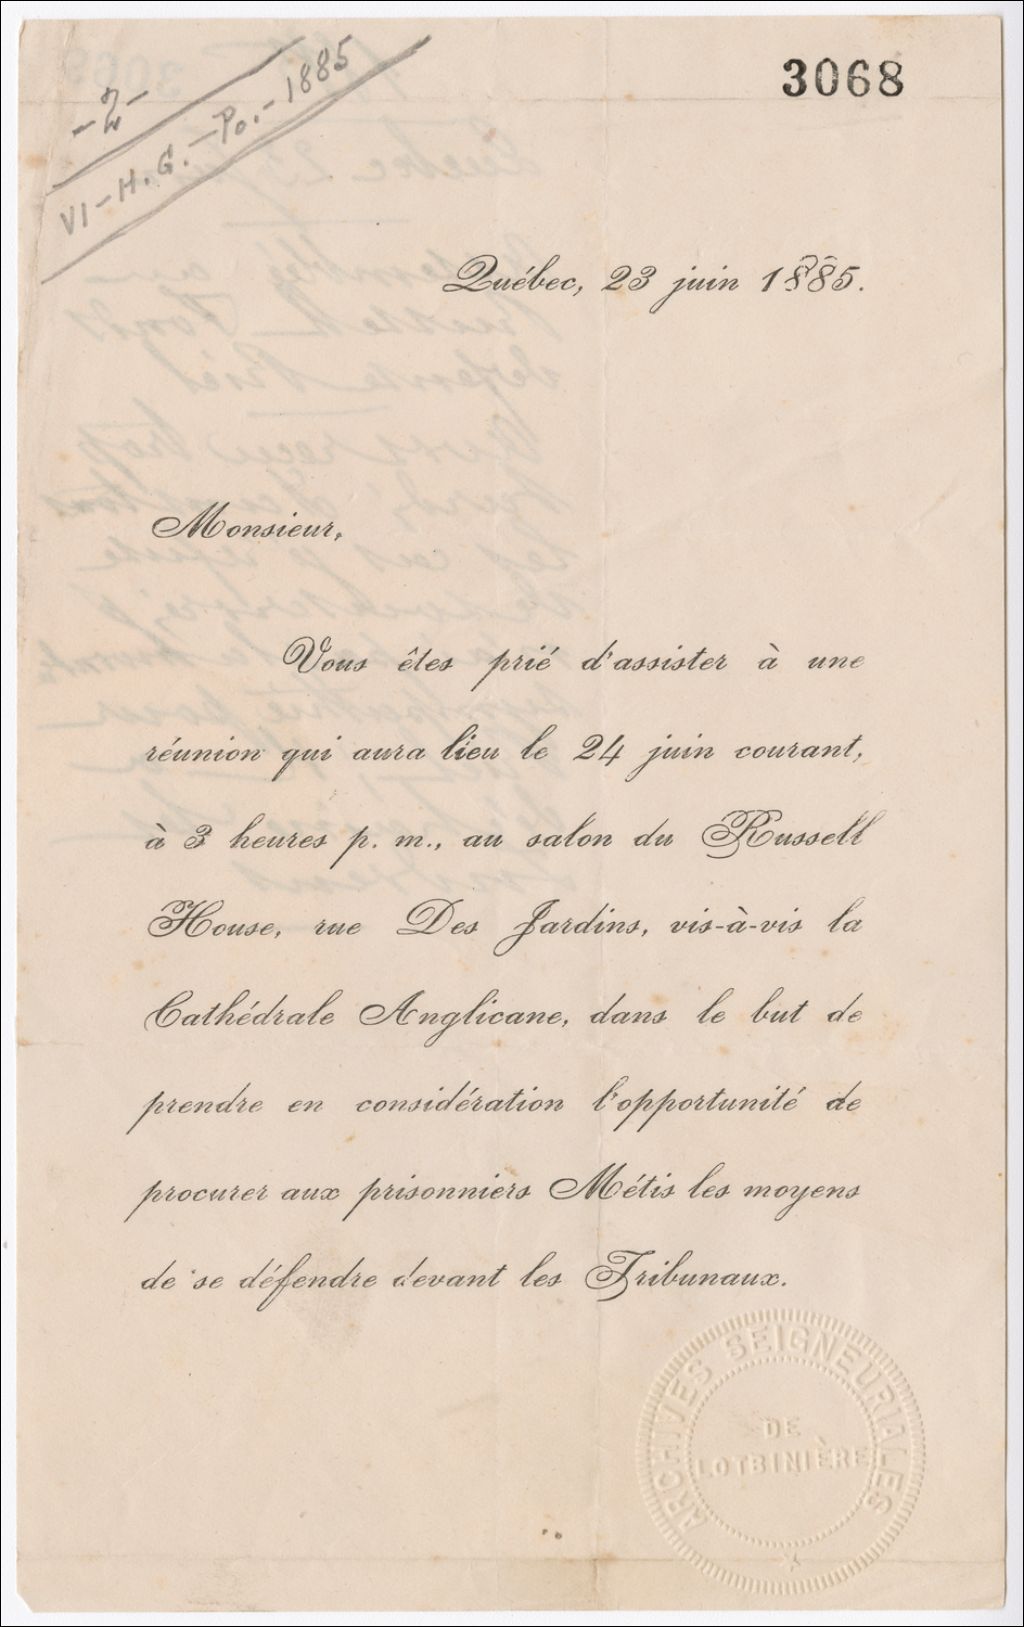 -2-
VI-H.G.-Po.-1885
3068
Québec, 23 juin 1885.
Monsieur,
Vous êtes prié d'assister à une
réunion qui aura lieu le 24 juin courant,
à 3 heures p. m., au salon du Russell
House, rue Des Jardins, vis-à-vis la
Cathédrale Anglicane, dans le but de
prendre en considération l'opportunité de
procurer aux prisonniers Métis les moyens
de se défendre devant les Tribunaux.
ARCHIVES SEIGNEURIALES
DE
LOTBINIÈRE